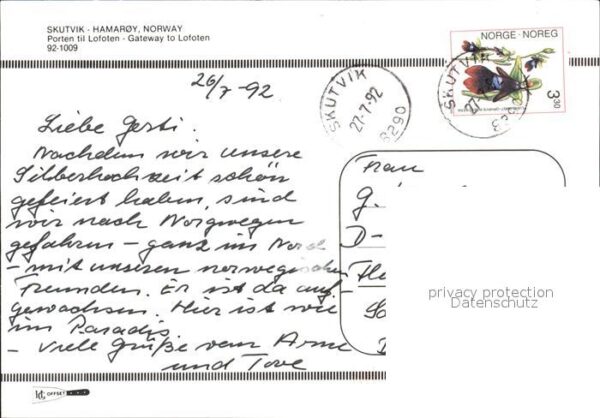 SKUTVIK - HAMARØY, NORWAY
Porten til Lofoten - Gateway to Lofoten
92-1009
NORGE · NOREG
3.30
SKUTVIK
27-7-92
8290
SKUTVIK
26/7-92
Liebe Gerti.
Nachdem wir unsere
Silberhochzeit schön
gefeiert haben, sind
wir nach Norwegen
gefahren - ganz im Nord
- mit unseren norwegischen
Freunden. Er ist da auf-
gewachsen. Hier ist wie
im Paradis.
- Viele Grüße von Arne
und Tove
Frau
G.
D-
privacy protection
Datenschutz
OFFSET